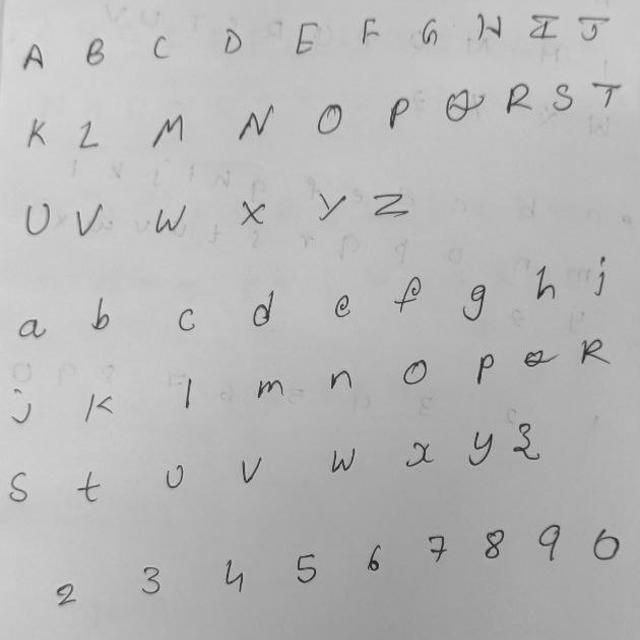 A B C D E F G H I J
K L M N O P Q R S T
U V W X Y Z
a b c d e f g h i
j k l m n o p q R
S t u v w x y z
2 3 4 5 6 7 8 9 0